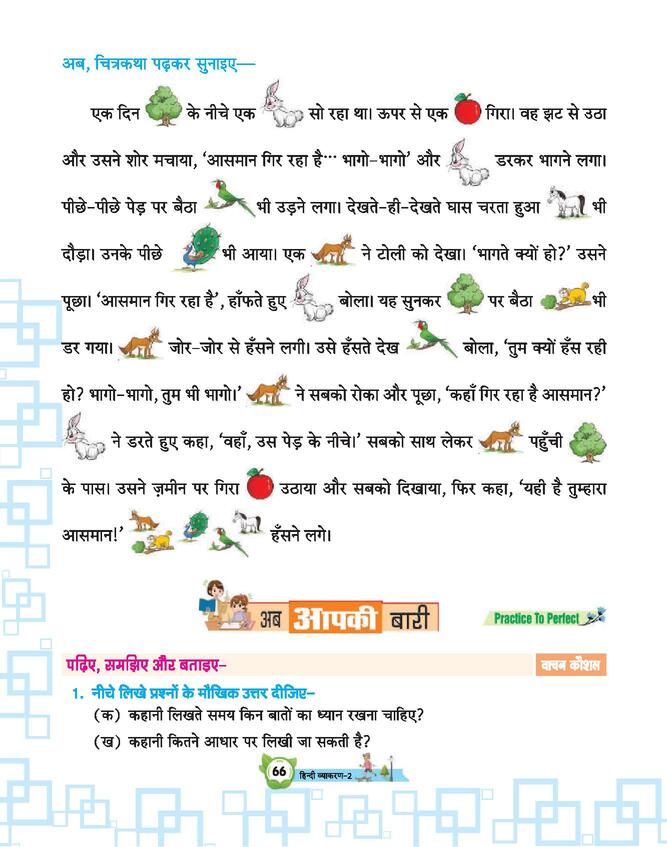 अब, चित्रकथा पढ़कर सुनाइए—
एक दिन के नीचे एक सो रहा था। ऊपर से एक गिरा। वह झट से उठा
और उसने शोर मचाया, ‘आसमान गिर रहा है… भागो-भागो’ और डरकर भागने लगा।
पीछे-पीछे पेड़ पर बैठा भी उड़ने लगा। देखते-ही-देखते घास चरता हुआ भी
दौड़ा। उनके पीछे भी आया। एक ने टोली को देखा। ‘भागते क्यों हो?’ उसने
पूछा। ‘आसमान गिर रहा है’, हाँफते हुए बोला। यह सुनकर पर बैठा भी
डर गया। जोर-जोर से हँसने लगी। उसे हँसते देख बोला, ‘तुम क्यों हँस रही
हो? भागो-भागो, तुम भी भागो।’ ने सबको रोका और पूछा, ‘कहाँ गिर रहा है आसमान?’
ने डरते हुए कहा, ‘वहाँ, उस पेड़ के नीचे।’ सबको साथ लेकर पहुँची
के पास। उसने ज़मीन पर गिरा उठाया और सबको दिखाया, फिर कहा, ‘यही है तुम्हारा
आसमान!’ हँसने लगे।
अब आपकी बारी
Practice To Perfect
पढ़िए, समझिए और बताइए-
वाचन कौशल
1. नीचे लिखे प्रश्नों के मौखिक उत्तर दीजिए-
(क) कहानी लिखते समय किन बातों का ध्यान रखना चाहिए?
(ख) कहानी कितने आधार पर लिखी जा सकती है?
66 हिन्दी व्याकरण-2